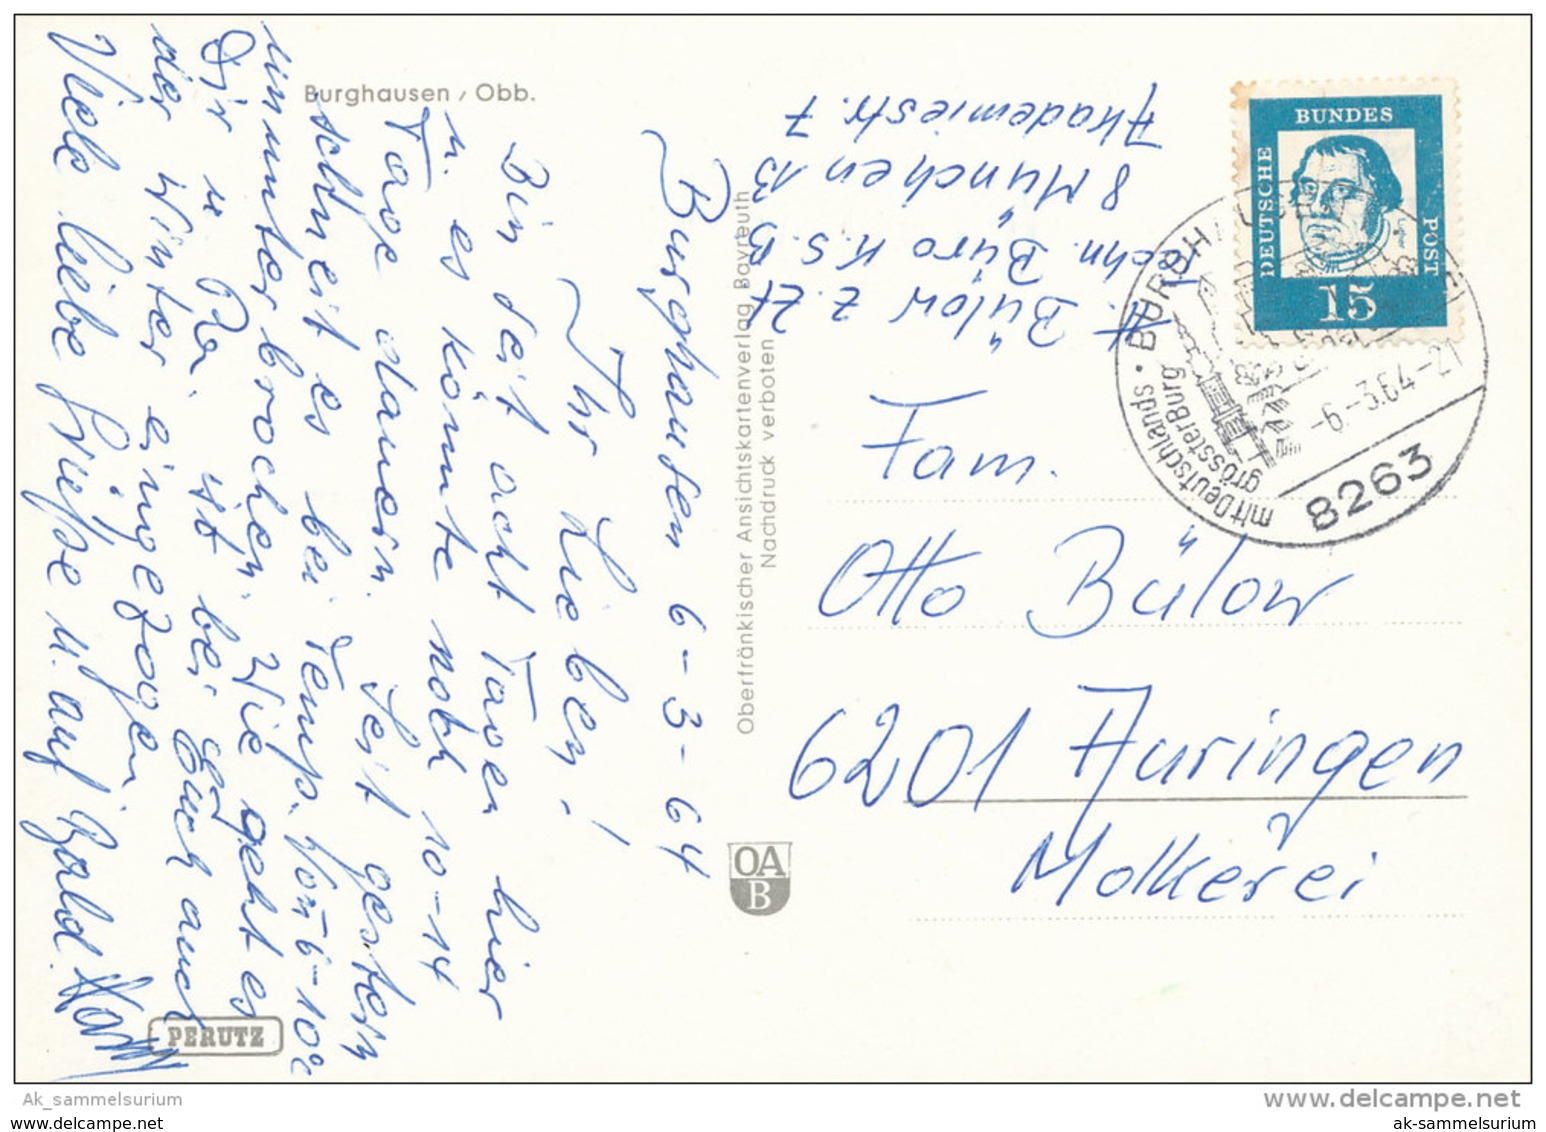 Burghausen / Obb.
Burghausen 6-3-64
Ihr Lieben,!
Bin seit acht Tagen hier
u. es könnte noch 10-14
Tage dauern. Seit gestern
schneit es bei Temp. von 6-10°C
ununterbrochen. Wie geht es
Dir u Pa. ist bei Euch auch
der Winter eingezogen.
Viele liebe Grüße u. auf bald.
PERUTZ
Oberfränkischer Ansichtskartenverlag Bayreuth
Nachdruck verboten
OA
B
Bülow z.Zt
Techn. Büro K.S.B
8 München 13
Akademiestr. 7
DEUTSCHE
BUNDES
POST
15
BURGHAUSEN
mit Deutschlands
grösster Burg
-6.-3.64-21
8263
Fam.
Otto Bülow
6201 Auringen
Molkerei
Ak_sammelsurium
www.delcampe.net
www.delcampe.net
ak-sammelsurium